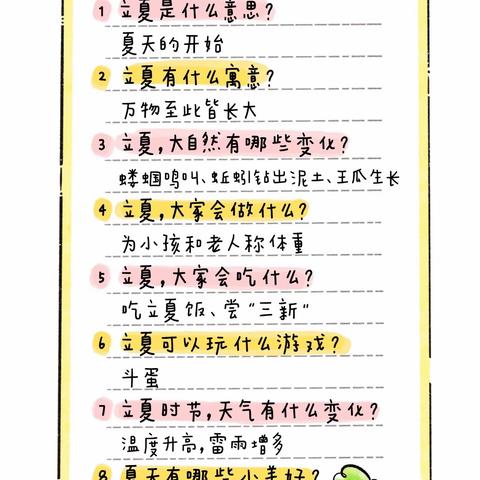 1 立夏是什么意思?
夏天的开始
2 立夏有什么寓意?
万物至此皆长大
3 立夏,大自然有哪些变化?
蝼蝈鸣叫、蚯蚓钻出泥土、王瓜生长
4 立夏,大家会做什么?
为小孩和老人称体重
5 立夏,大家会吃什么?
吃立夏饭、尝“三新”
6 立夏可以玩什么游戏?
斗蛋
7 立夏时节,天气有什么变化?
温度升高,雷雨增多
8 夏天有哪些小美好?